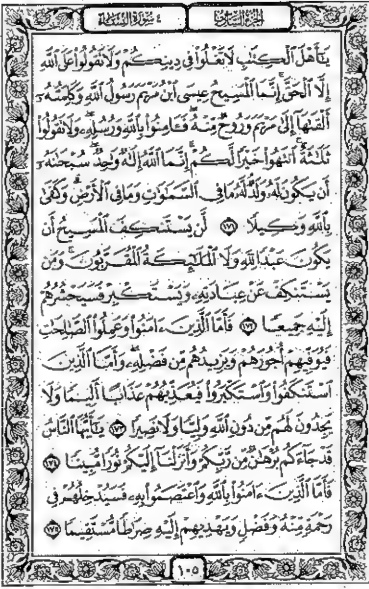 الجزء السادس
٤ سورة النساء
يَٰٓأَهْلَ ٱلْكِتَٰبِ لَا تَغْلُوا۟ فِى دِينِكُمْ وَلَا تَقُولُوا۟ عَلَى ٱللَّهِ
إِلَّا ٱلْحَقَّ ۚ إِنَّمَا ٱلْمَسِيحُ عِيسَى ٱبْنُ مَرْيَمَ رَسُولُ ٱللَّهِ وَكَلِمَتُهُۥٓ
أَلْقَىٰهَآ إِلَىٰ مَرْيَمَ وَرُوحٌ مِّنْهُ ۖ فَـَٔامِنُوا۟ بِٱللَّهِ وَرُسُلِهِۦ ۖ وَلَا تَقُولُوا۟
ثَلَٰثَةٌ ۚ ٱنتَهُوا۟ خَيْرًا لَّكُمْ ۚ إِنَّمَا ٱللَّهُ إِلَٰهٌ وَٰحِدٌ ۖ سُبْحَٰنَهُۥٓ
أَن يَكُونَ لَهُۥ وَلَدٌ ۘ لَّهُۥ مَا فِى ٱلسَّمَٰوَٰتِ وَمَا فِى ٱلْأَرْضِ ۗ وَكَفَىٰ
بِٱللَّهِ وَكِيلًا ١٧١ لَّن يَسْتَنكِفَ ٱلْمَسِيحُ أَن
يَكُونَ عَبْدًا لِّلَّهِ وَلَا ٱلْمَلَٰٓئِكَةُ ٱلْمُقَرَّبُونَ ۚ وَمَن
يَسْتَنكِفْ عَنْ عِبَادَتِهِۦ وَيَسْتَكْبِرْ فَسَيَحْشُرُهُمْ
إِلَيْهِ جَمِيعًا ١٧٢ فَأَمَّا ٱلَّذِينَ ءَامَنُوا۟ وَعَمِلُوا۟ ٱلصَّٰلِحَٰتِ
فَيُوَفِّيهِمْ أُجُورَهُمْ وَيَزِيدُهُم مِّن فَضْلِهِۦ ۖ وَأَمَّا ٱلَّذِينَ
ٱسْتَنكَفُوا۟ وَٱسْتَكْبَرُوا۟ فَيُعَذِّبُهُمْ عَذَابًا أَلِيمًا وَلَا
يَجِدُونَ لَهُم مِّن دُونِ ٱللَّهِ وَلِيًّا وَلَا نَصِيرًا ١٧٣ يَٰٓأَيُّهَا ٱلنَّاسُ
قَدْ جَآءَكُم بُرْهَٰنٌ مِّن رَّبِّكُمْ وَأَنزَلْنَآ إِلَيْكُمْ نُورًا مُّبِينًا ١٧٤
فَأَمَّا ٱلَّذِينَ ءَامَنُوا۟ بِٱللَّهِ وَٱعْتَصَمُوا۟ بِهِۦ فَسَيُدْخِلُهُمْ فِى
رَحْمَةٍ مِّنْهُ وَفَضْلٍ وَيَهْدِيهِمْ إِلَيْهِ صِرَٰطًا مُّسْتَقِيمًا ١٧٥
١٠٥